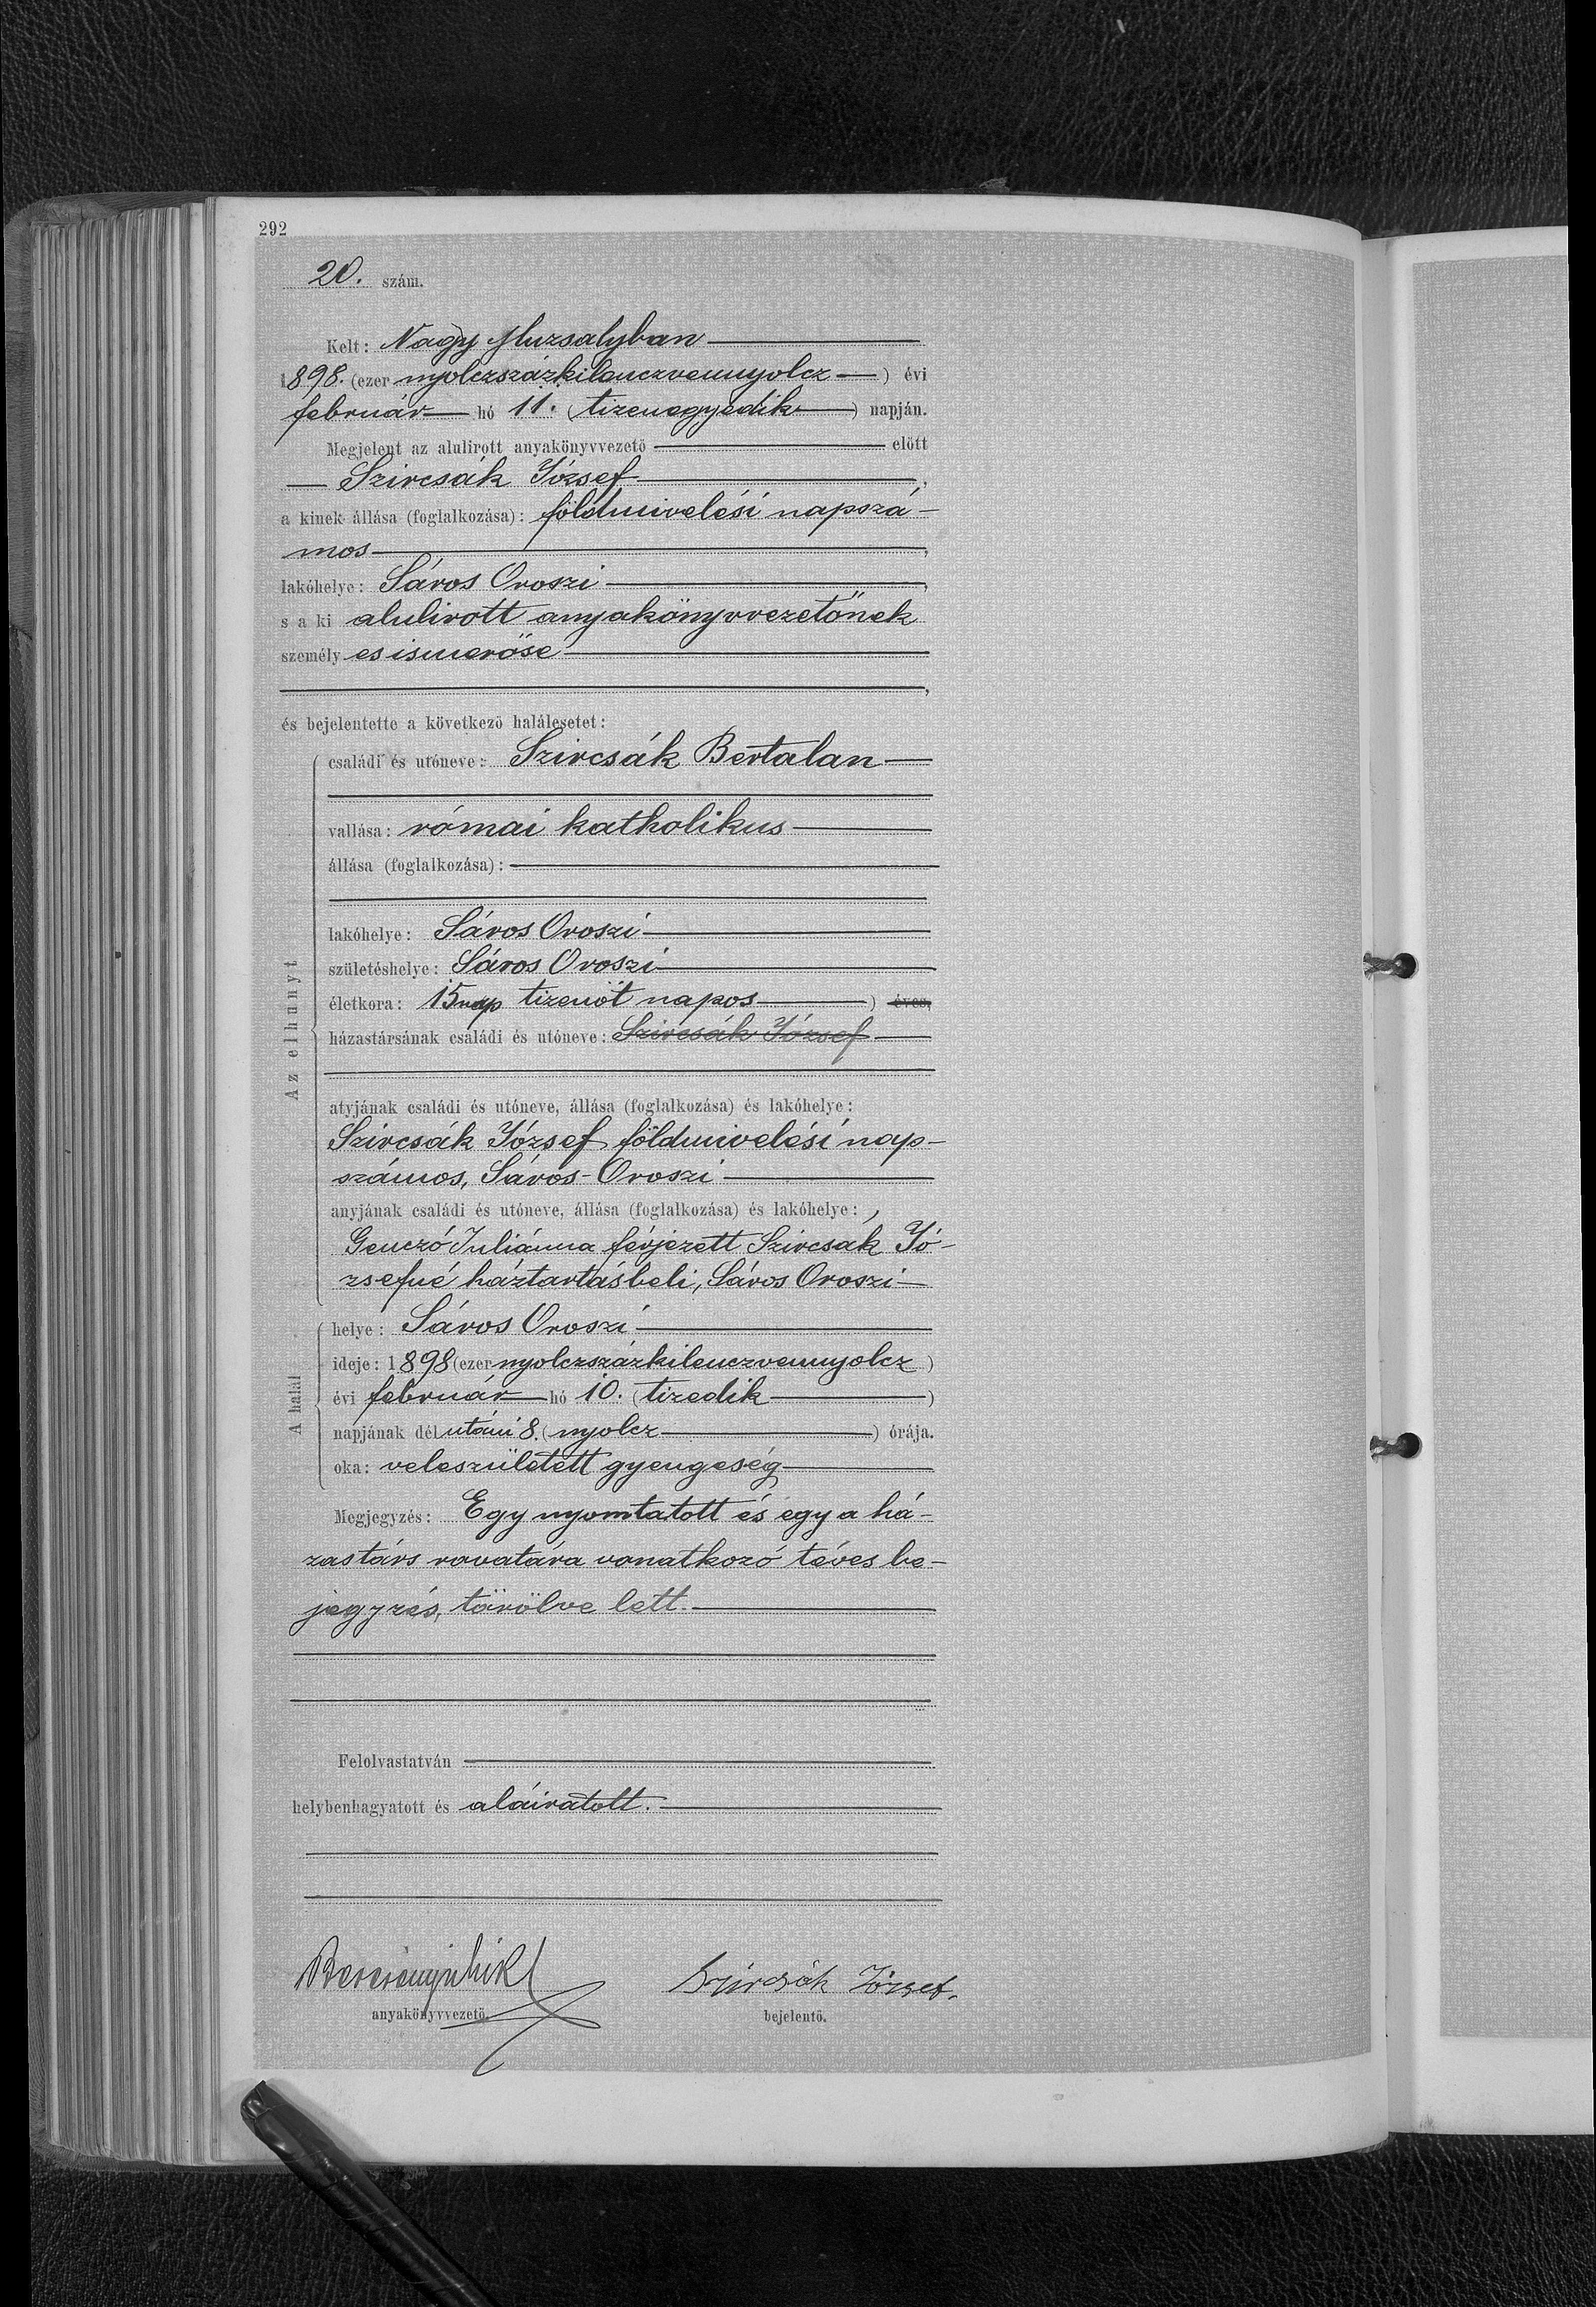 292
20. szám.
Kelt: Nagy Muzsalyban
1898. (ezer nyolczszázkilenczvennyolcz) évi
február hó 11. (tizenegyedik) napján.
Megjelent az alulirott anyakönyvvezető előtt
Szircsák József,
a kinek állása (foglalkozása): földmivelési napszá-
mos,
lakóhelye: Sáros Oroszi,
s a ki alulirott anyakönyvvezetőnek
személyes ismerőse
,
és bejelentette a következő halálesetet:
Az elhunyt
családi és utóneve: Szircsák Bertalan
vallása: római katholikus
állása (foglalkozása):
lakóhelye: Sáros Oroszi
születéshelye: Sáros Oroszi
életkora: 15 nap tizenöt napos) éves,
házastársának családi és utóneve: Szircsák József
atyjának családi és utóneve, állása (foglalkozása) és lakóhelye:
Szircsák József földmivelési nap-
számos, Sáros-Oroszi
anyjának családi és utóneve, állása (foglalkozása) és lakóhelye:
Genczó Juliánna férjezett Szircsák Jó-
zsefné háztartásbeli, Sáros Oroszi
A halál
helye: Sáros Oroszi
ideje: 1898 (ezer nyolczszázkilenczvennyolcz)
évi február hó 10. (tizedik)
napjának délutáni 8. (nyolcz) órája.
oka: veleszületett gyengeség
Megjegyzés: Egy nyomtatott és egy a há-
zastárs rovatára vonatkozó téves be-
jegyzés, törölve lett.
Felolvastatván
helybenhagyatott és aláiratott.
Szircsák József.
anyakönyvvezető.
bejelentő.